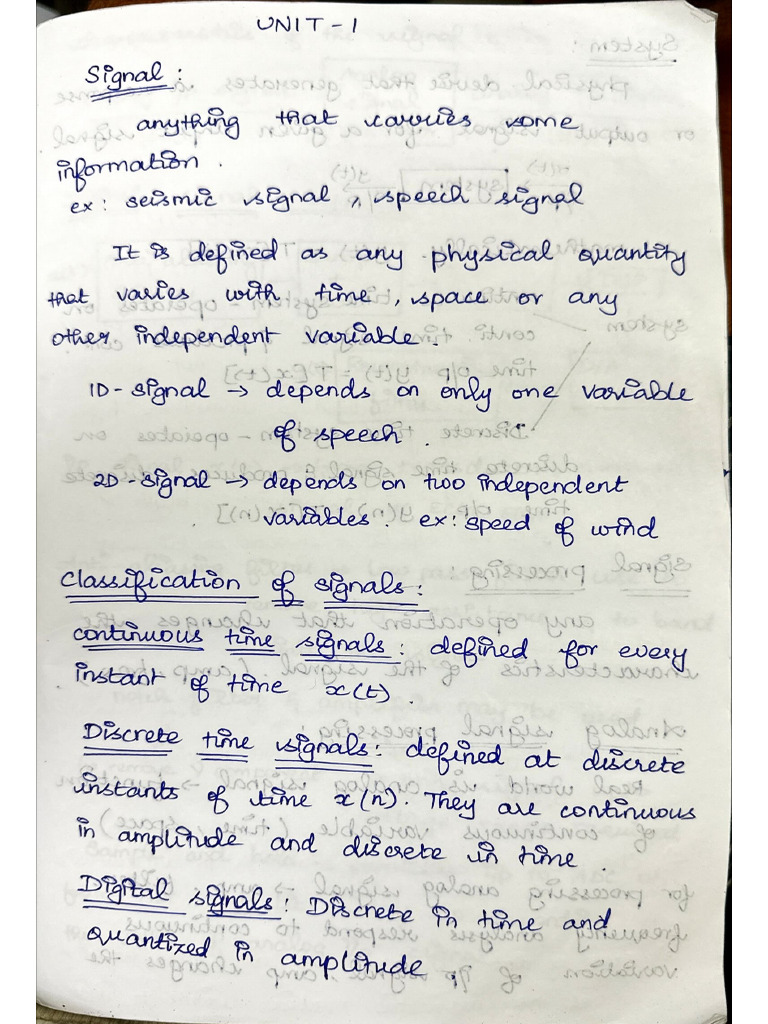 UNIT-1
Signal:
anything that carries some
information.
ex: seismic signal, speech signal
It is defined as any physical quantity
that varies with time, space or any
other independent variable.
1D-signal → depends on only one variable
of speech.
2D-signal → depends on two independent
variables. ex: speed of wind
Classification of signals:
continuous time signals: defined for every
instant of time x(t).
Discrete time signals: defined at discrete
instants of time x(n). They are continuous
in amplitude and discrete in time.
Digital signals: Discrete in time and
quantized in amplitude.